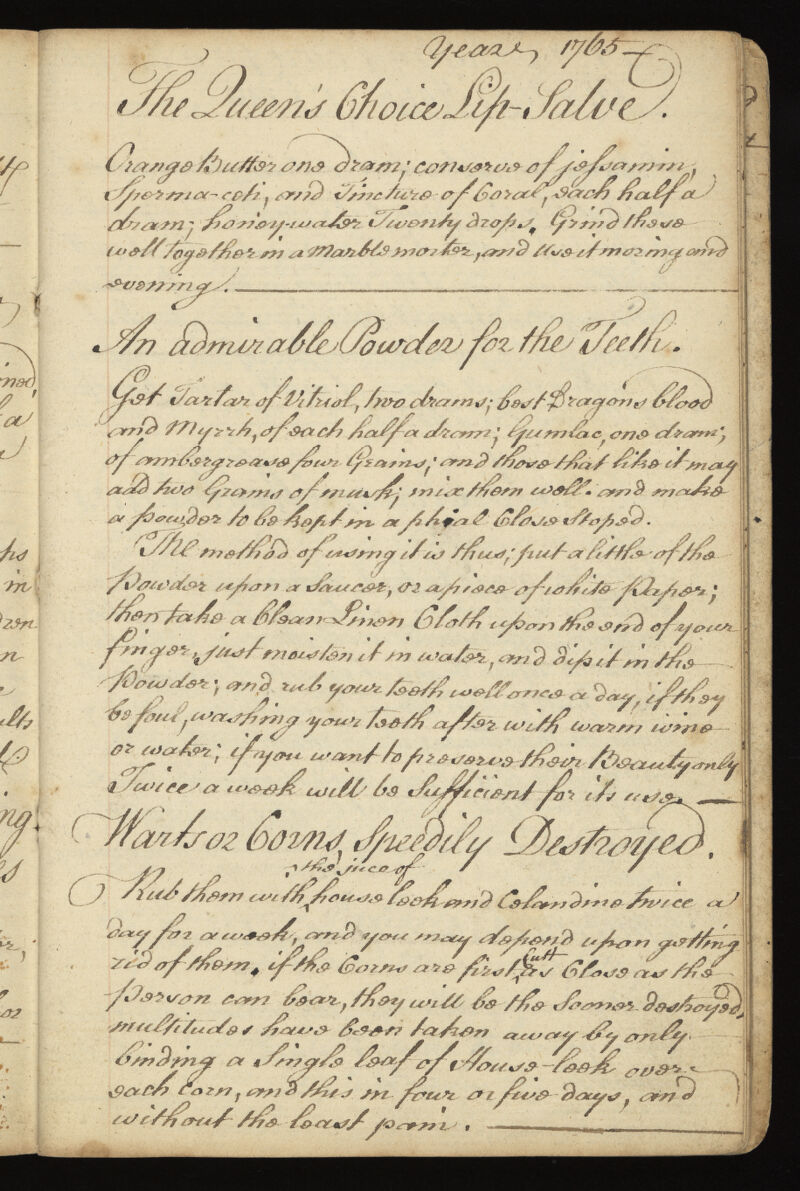 Year, 1765
The Queen's Choice Lip-Salve.
Orange Butter one dram; conserve of jessamin,
Sperma-ceti, and Tincture of Coral, each half a
dram; honey-water Twenty drops. Grind these
well together in a Marble morter, and Use it moring and
evening.
An admirable Powder for the Teeth.
Get Tartar of Vitriol, two drams; best Dragons blood
and Myrrh, of each half a dram; Gumlac, one dram;
of ambergrease four Grains; and those that like it may
add two Grains of musk; mix them well. and make
a Powder to be kept in a phial Close Stoped.
The method of using it is thus; put a little of the
Powder upon a Saucer, or a piece of white Paper;
then take a Clean Linen Cloth upon the end of your
finger, just moisten it in water, and dip it in the
Powder; and rub your teeth well once a day, if they
be foul, washing your teeth after with warm wine
or water; if you want to preserve their Beauty only
Twice a week will be Sufficient for its use.
Warts or Corns, Speedily Destroyed.
the juce of
Rub them with house leek and Celandine twice a
day for a week, and you may depend upon getting
Cutt
rid of them. if the Corns are first as Close as the
Person can bear, they will be the Sooner destroyed.
multitudes have been taken away by only
binding a Single leaf of House-leek over
each Corn, and this in four or five days, and
without the least pain.